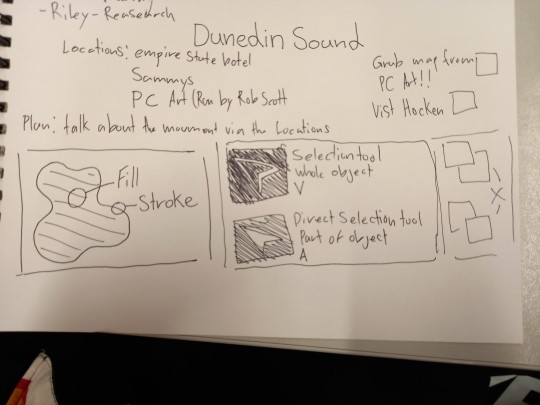 -Riley-Reasearch
Dunedin Sound
Locations: empire state hotel
Sammys
PC Art (Ran by Rob Scott
Grab map from
PC Art!!
Vist Hocken
Plan: talk about the movment via the Locations
Fill
Stroke
Selection tool
whole object
V
Direct Selection tool
Part of object
A
X